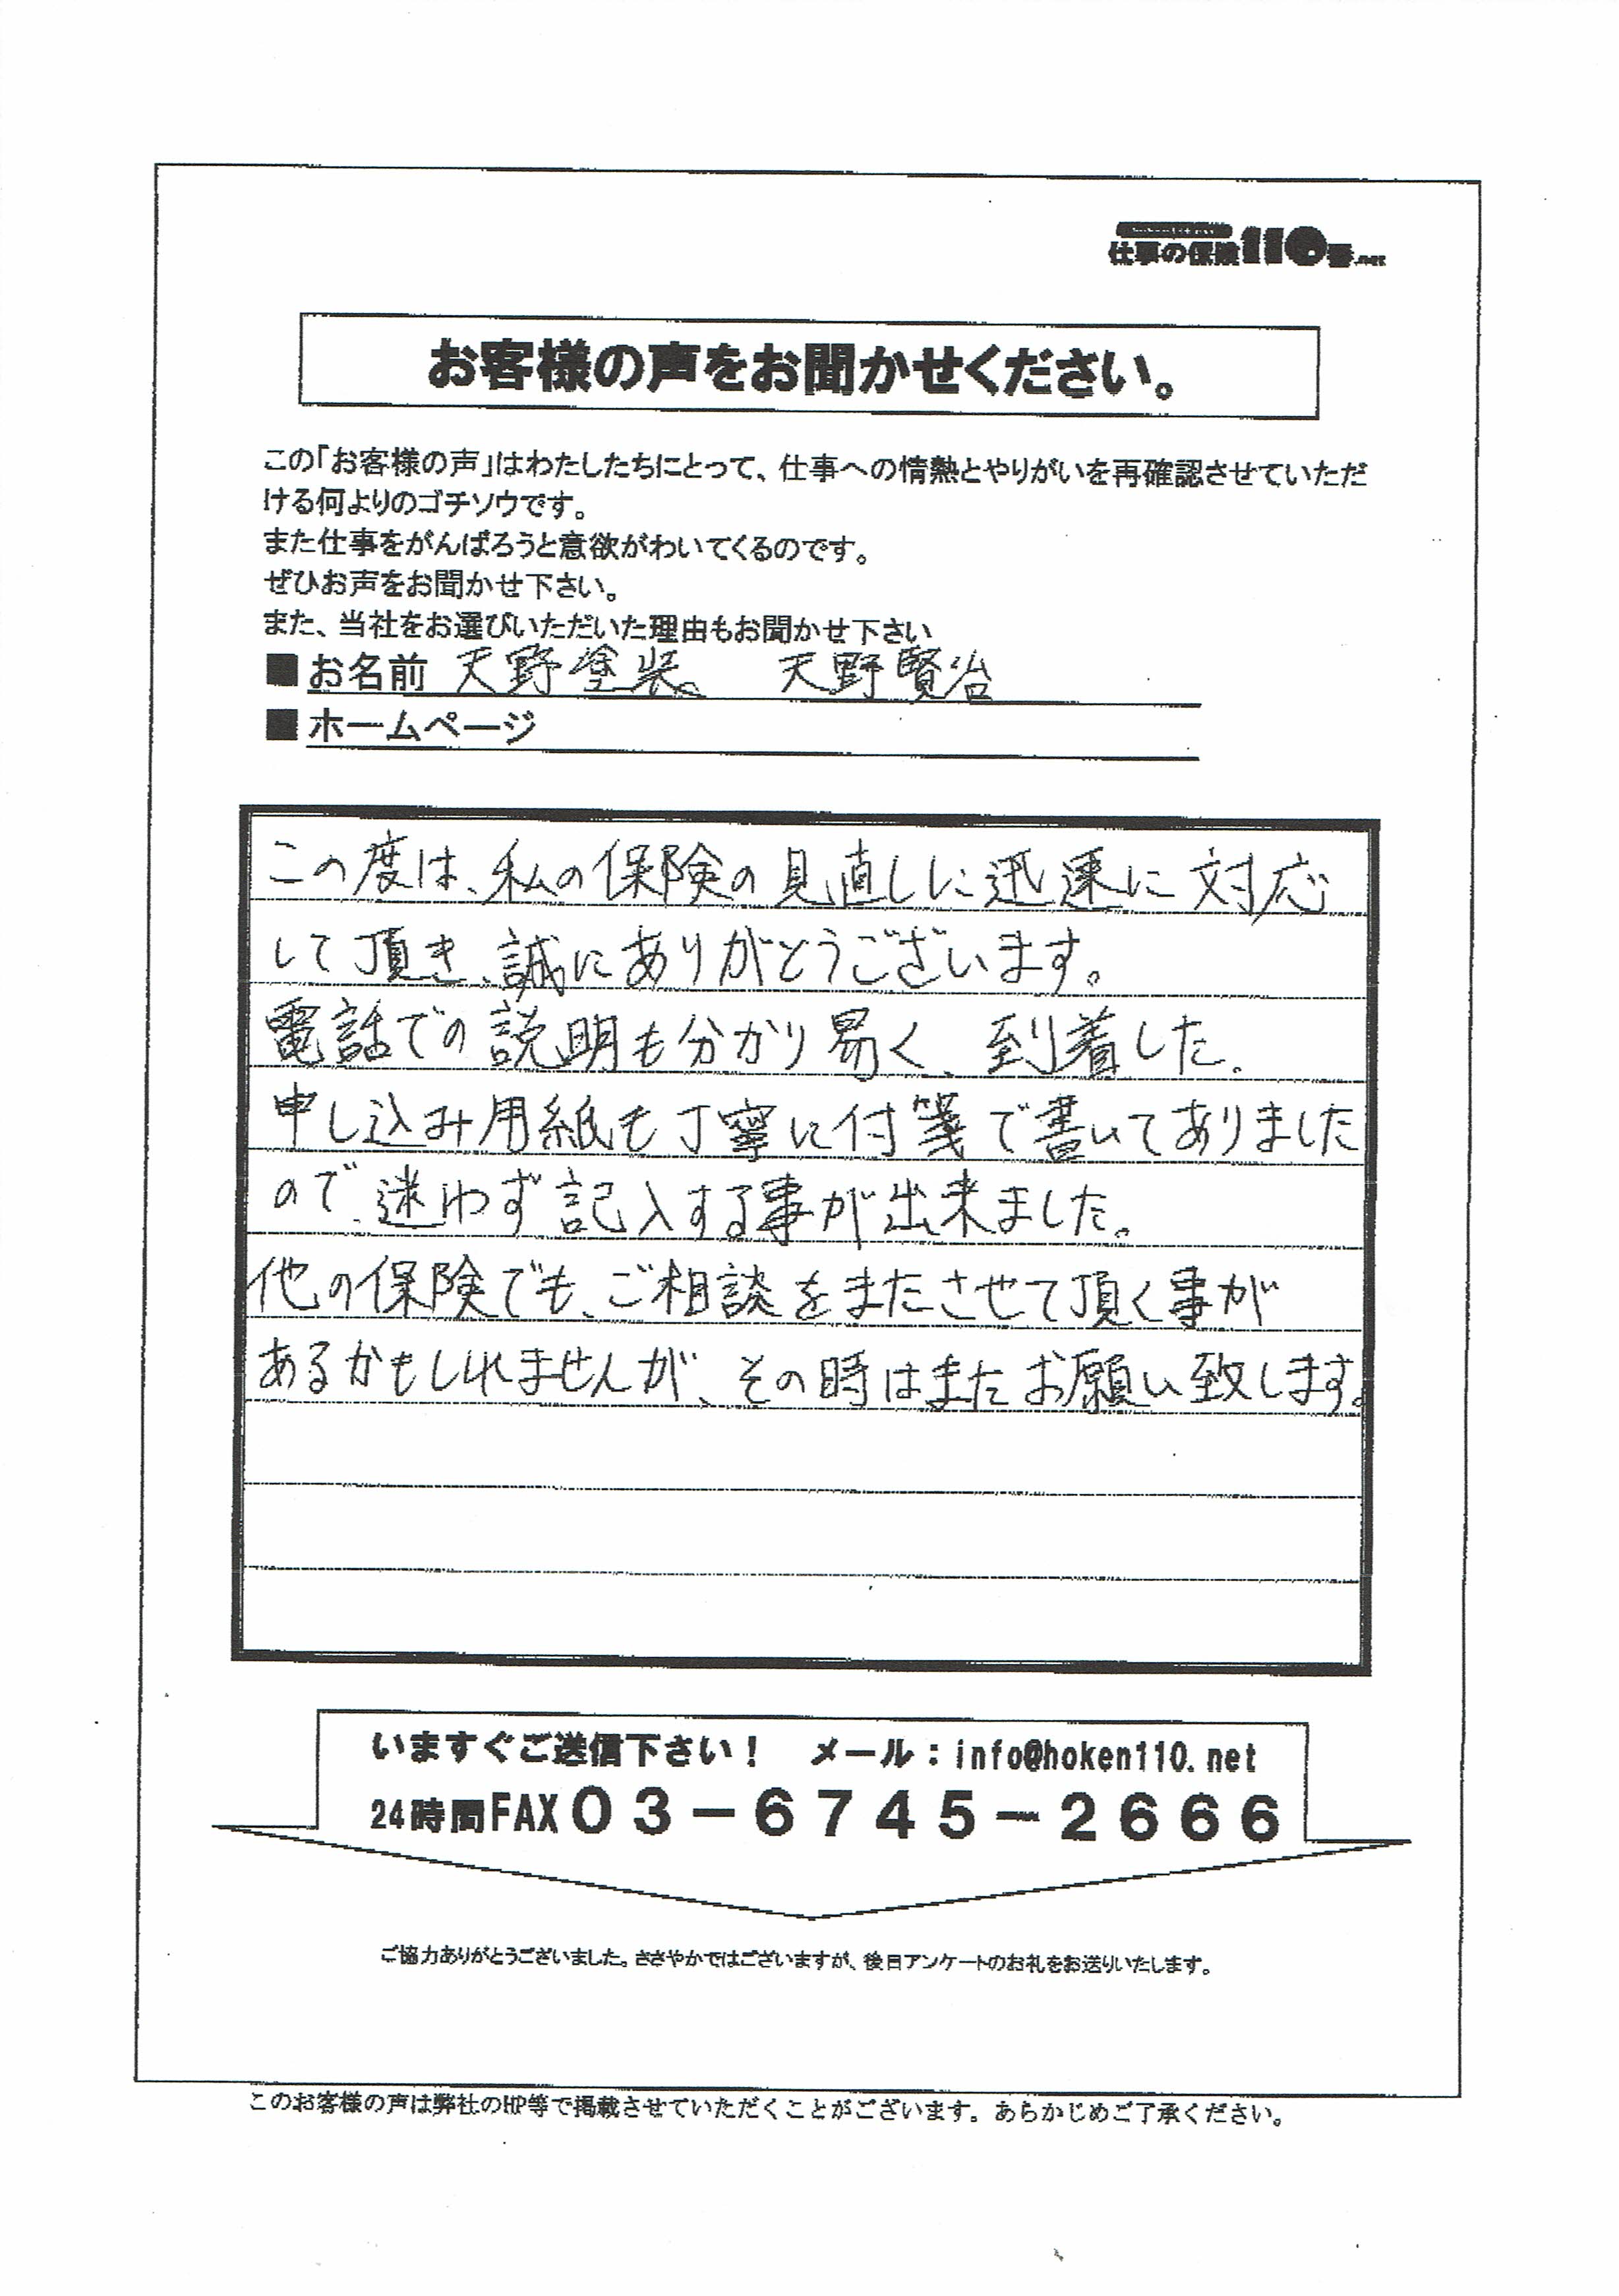 仕事の保険110番.net
お客様の声をお聞かせください。
この「お客様の声」はわたしたちにとって、仕事への情熱とやりがいを再確認させていただ
ける何よりのゴチソウです。
また仕事をがんばろうと意欲がわいてくるのです。
ぜひお声をお聞かせ下さい。
また、当社をお選びいただいた理由もお聞かせ下さい
■お名前 天野塗装 天野賢治
■ホームページ
この度は、私の保険の見直しに迅速に対応
して頂き、誠にありがとうございます。
電話での説明も分かり易く、到着した、
申し込み用紙も丁寧に付箋で書いてありました
ので、迷わず記入する事が出来ました。
他の保険でも、ご相談をまたさせて頂く事が
あるかもしれませんが、その時はまたお願い致します。
いますぐご送信下さい! メール:info@hoken110.net
24時間FAX03-6745-2666
ご協力ありがとうございました。ささやかではございますが、後日アンケートのお礼をお送りいたします。
このお客様の声は弊社のHP等で掲載させていただくことがございます。あらかじめご了承ください。